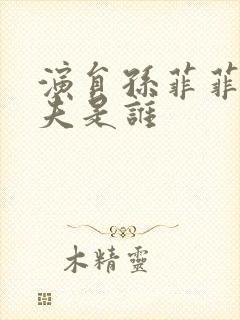 演員孫菲菲
夫是誰
木精靈